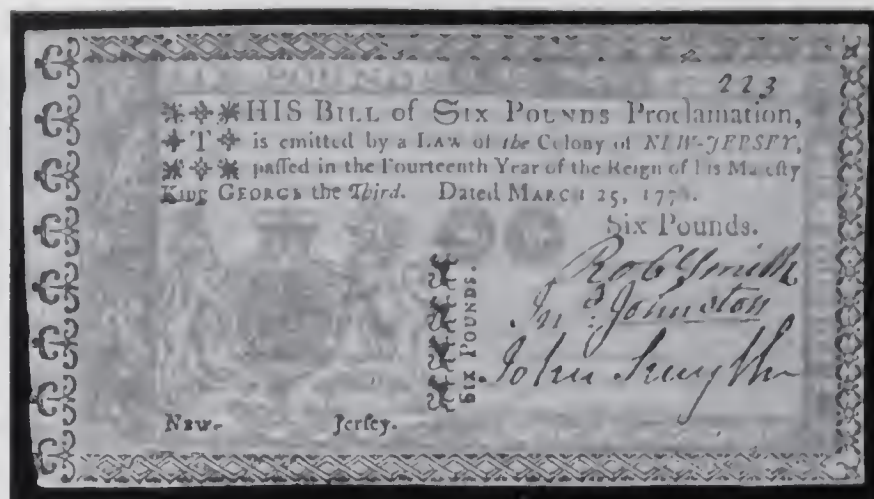 223
HIS BILL of SIX POUNDS Proclamation,
T is emitted by a LAW of the Colony of NEW-JERSEY,
paſſed in the Fourteenth Year of the Reign of His Majeſty
KING GEORGE the Third. Dated MARCH 25, 177
Six Pounds.
Rob Smith
Jnº Johnston
John Smyth
SIX POUNDS.
NEW- Jerſey.